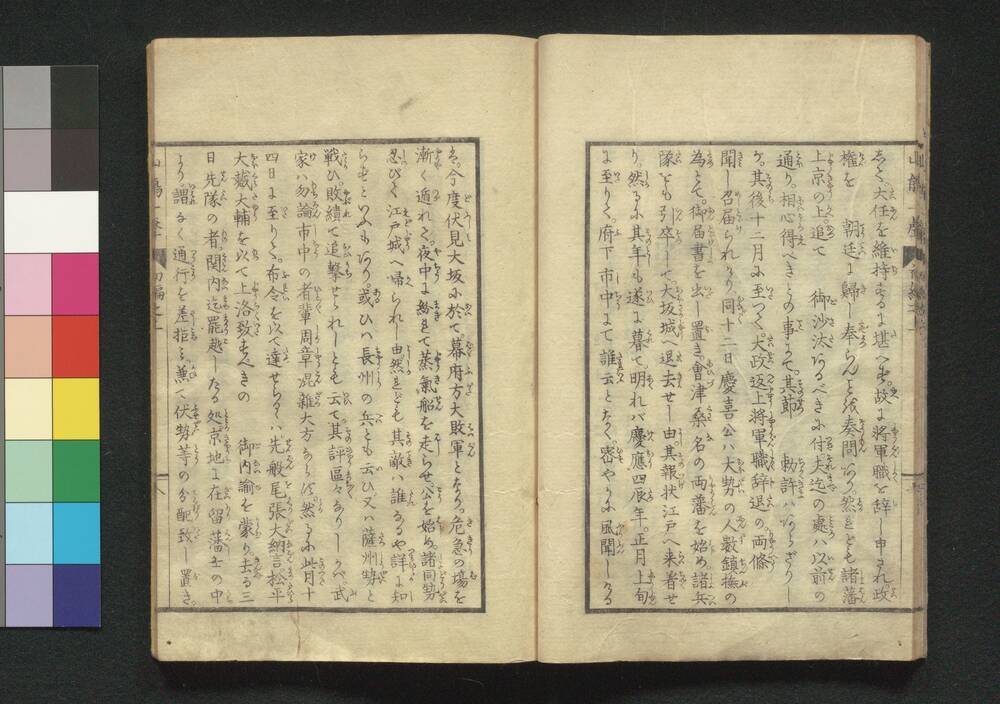 るく、大任を維持するに堪へず。故に将軍職を辞し申され。政
権を　朝廷に歸し奉らんと欲奏聞あり。然れども諸藩
上京の上追て　御沙汰あるべきに付夫迄の處ハ以前の
通り。相心得べきとの事にて。其節　勅許ハあらざりし
が。其後十二月に至つて。大政返上将軍職辞退の。両條
聞し召届られたり。同十二日慶喜公ハ大勢の人数鎮撫の
為とて。御届書を出し置き。會津桑名の両藩を始め諸兵
隊ども引卒して大坂城へ退去せし由。其報状江戸へ来着せ
り。然るに其年も遂に暮て明れバ慶應四辰年。正月上旬
に至りて。府下市中にて誰云となく。密やかに風聞しける
は。今度伏見大坂に於て。幕府方大敗軍となり。危急の場を
漸く遁れて。夜中に紛れて蒸氣船を走らせ。公を始め。諸同勢
忍びて江戸城へ帰られし由然れども其敵ハ誰なるや詳に知
らずといふもあり。或ひハ長州の兵とも云ひ又ハ薩州勢と
戦ひ敗績して追撃せられしとも云て其評區々なりしかバ。武
家ハ勿論市中の者輩周章混雑大方ならず。然るに此月十
四日に至りて。布令を以て達せらるゝハ先般尾張大納言。松平
大蔵大輔を以て上洛致すべきの　御内諭を蒙り。去る三
日先隊の者。関内迄罷越したる処京地に在留藩士の中
より謂なく通行を差拒み。兼て伏勢等の分配致し置き。